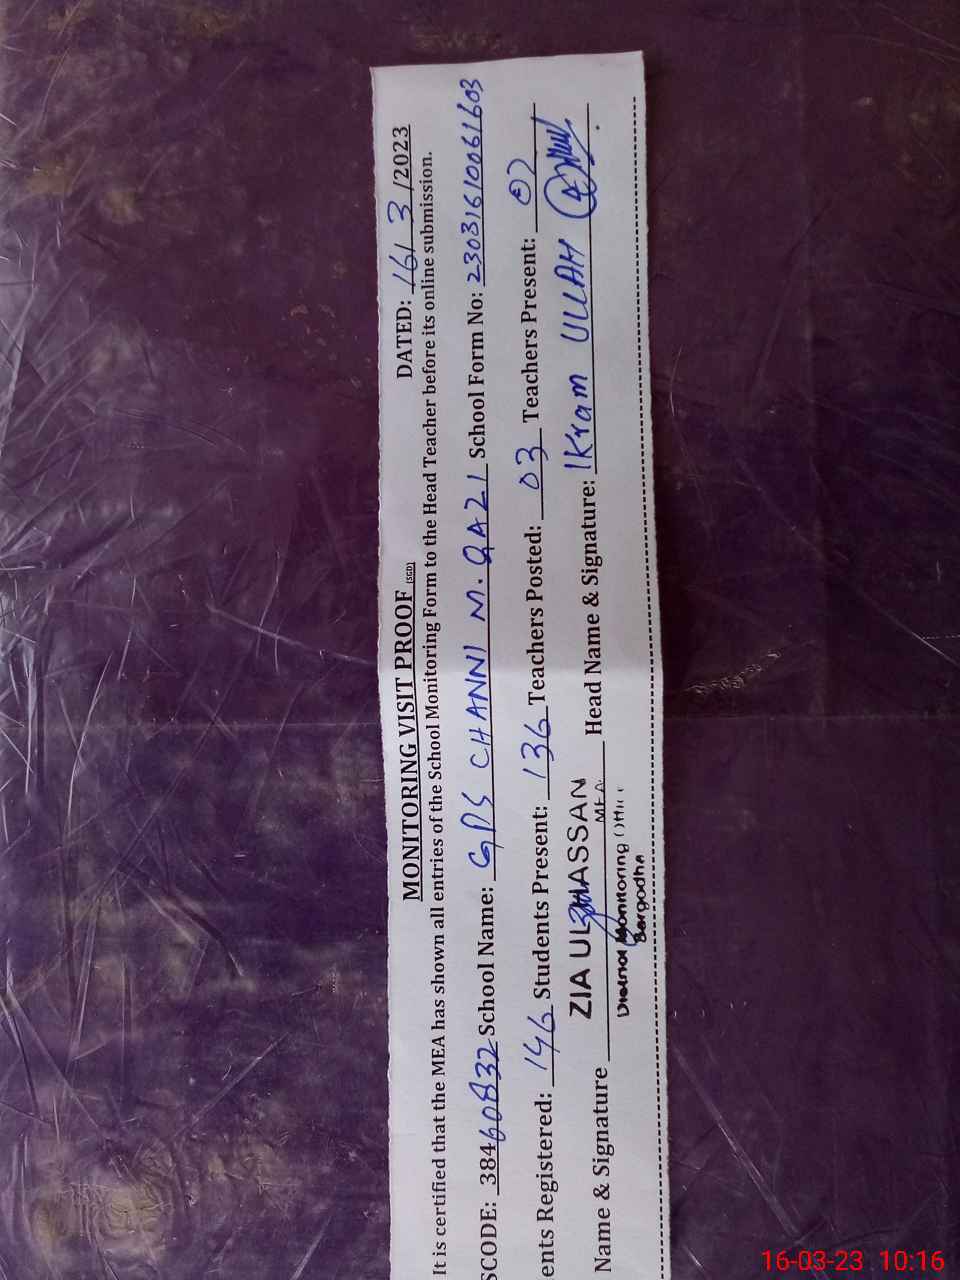 MONITORING VISIT PROOF (SGD) DATED: 16/3/2023
It is certified that the MEA has shown all entries of the School Monitoring Form to the Head Teacher before its online submission.
SCODE: 38460832 School Name: GPS CHANNI M. QAZI School Form No: 23031610061603
ents Registered: 146 Students Present: 136 Teachers Posted: 03 Teachers Present: 02
Name & Signature ZIA UL HASSAN Head Name & Signature: IKram ULLAH
MEA
District Monitoring Office
Sargodha
16-03-23 10:16